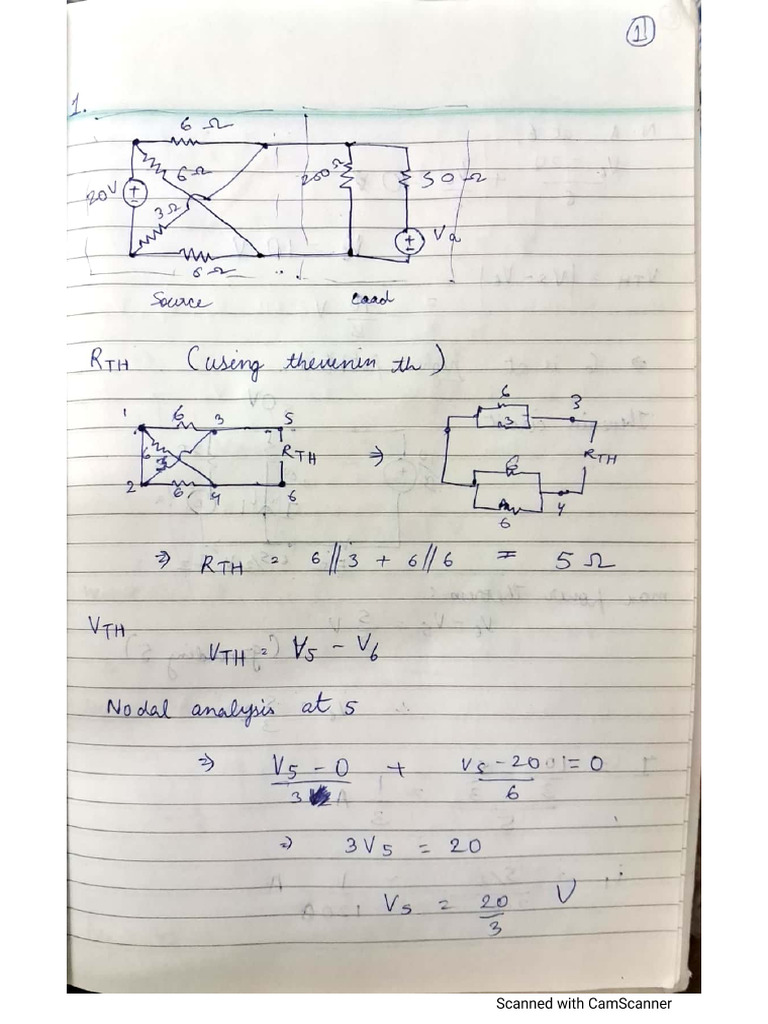 1
1.
6 Ω
6Ω
200Ω
50 Ω
20V
3Ω
Va
6Ω
Source Load
RTH (using thevenin th)
1 6 3 5
6 3 RTH
2 6 4 6
⇒
6 3
3
RTH
6
4
6
⇒ RTH = 6//3 + 6//6 = 5 Ω
VTH
VTH = V5 - V6
Nodal analysis at 5
⇒ V5 - 0 / 3 + V5 - 20 / 6 = 0
⇒ 3V5 = 20
V5 = 20/3 V
Scanned with CamScanner